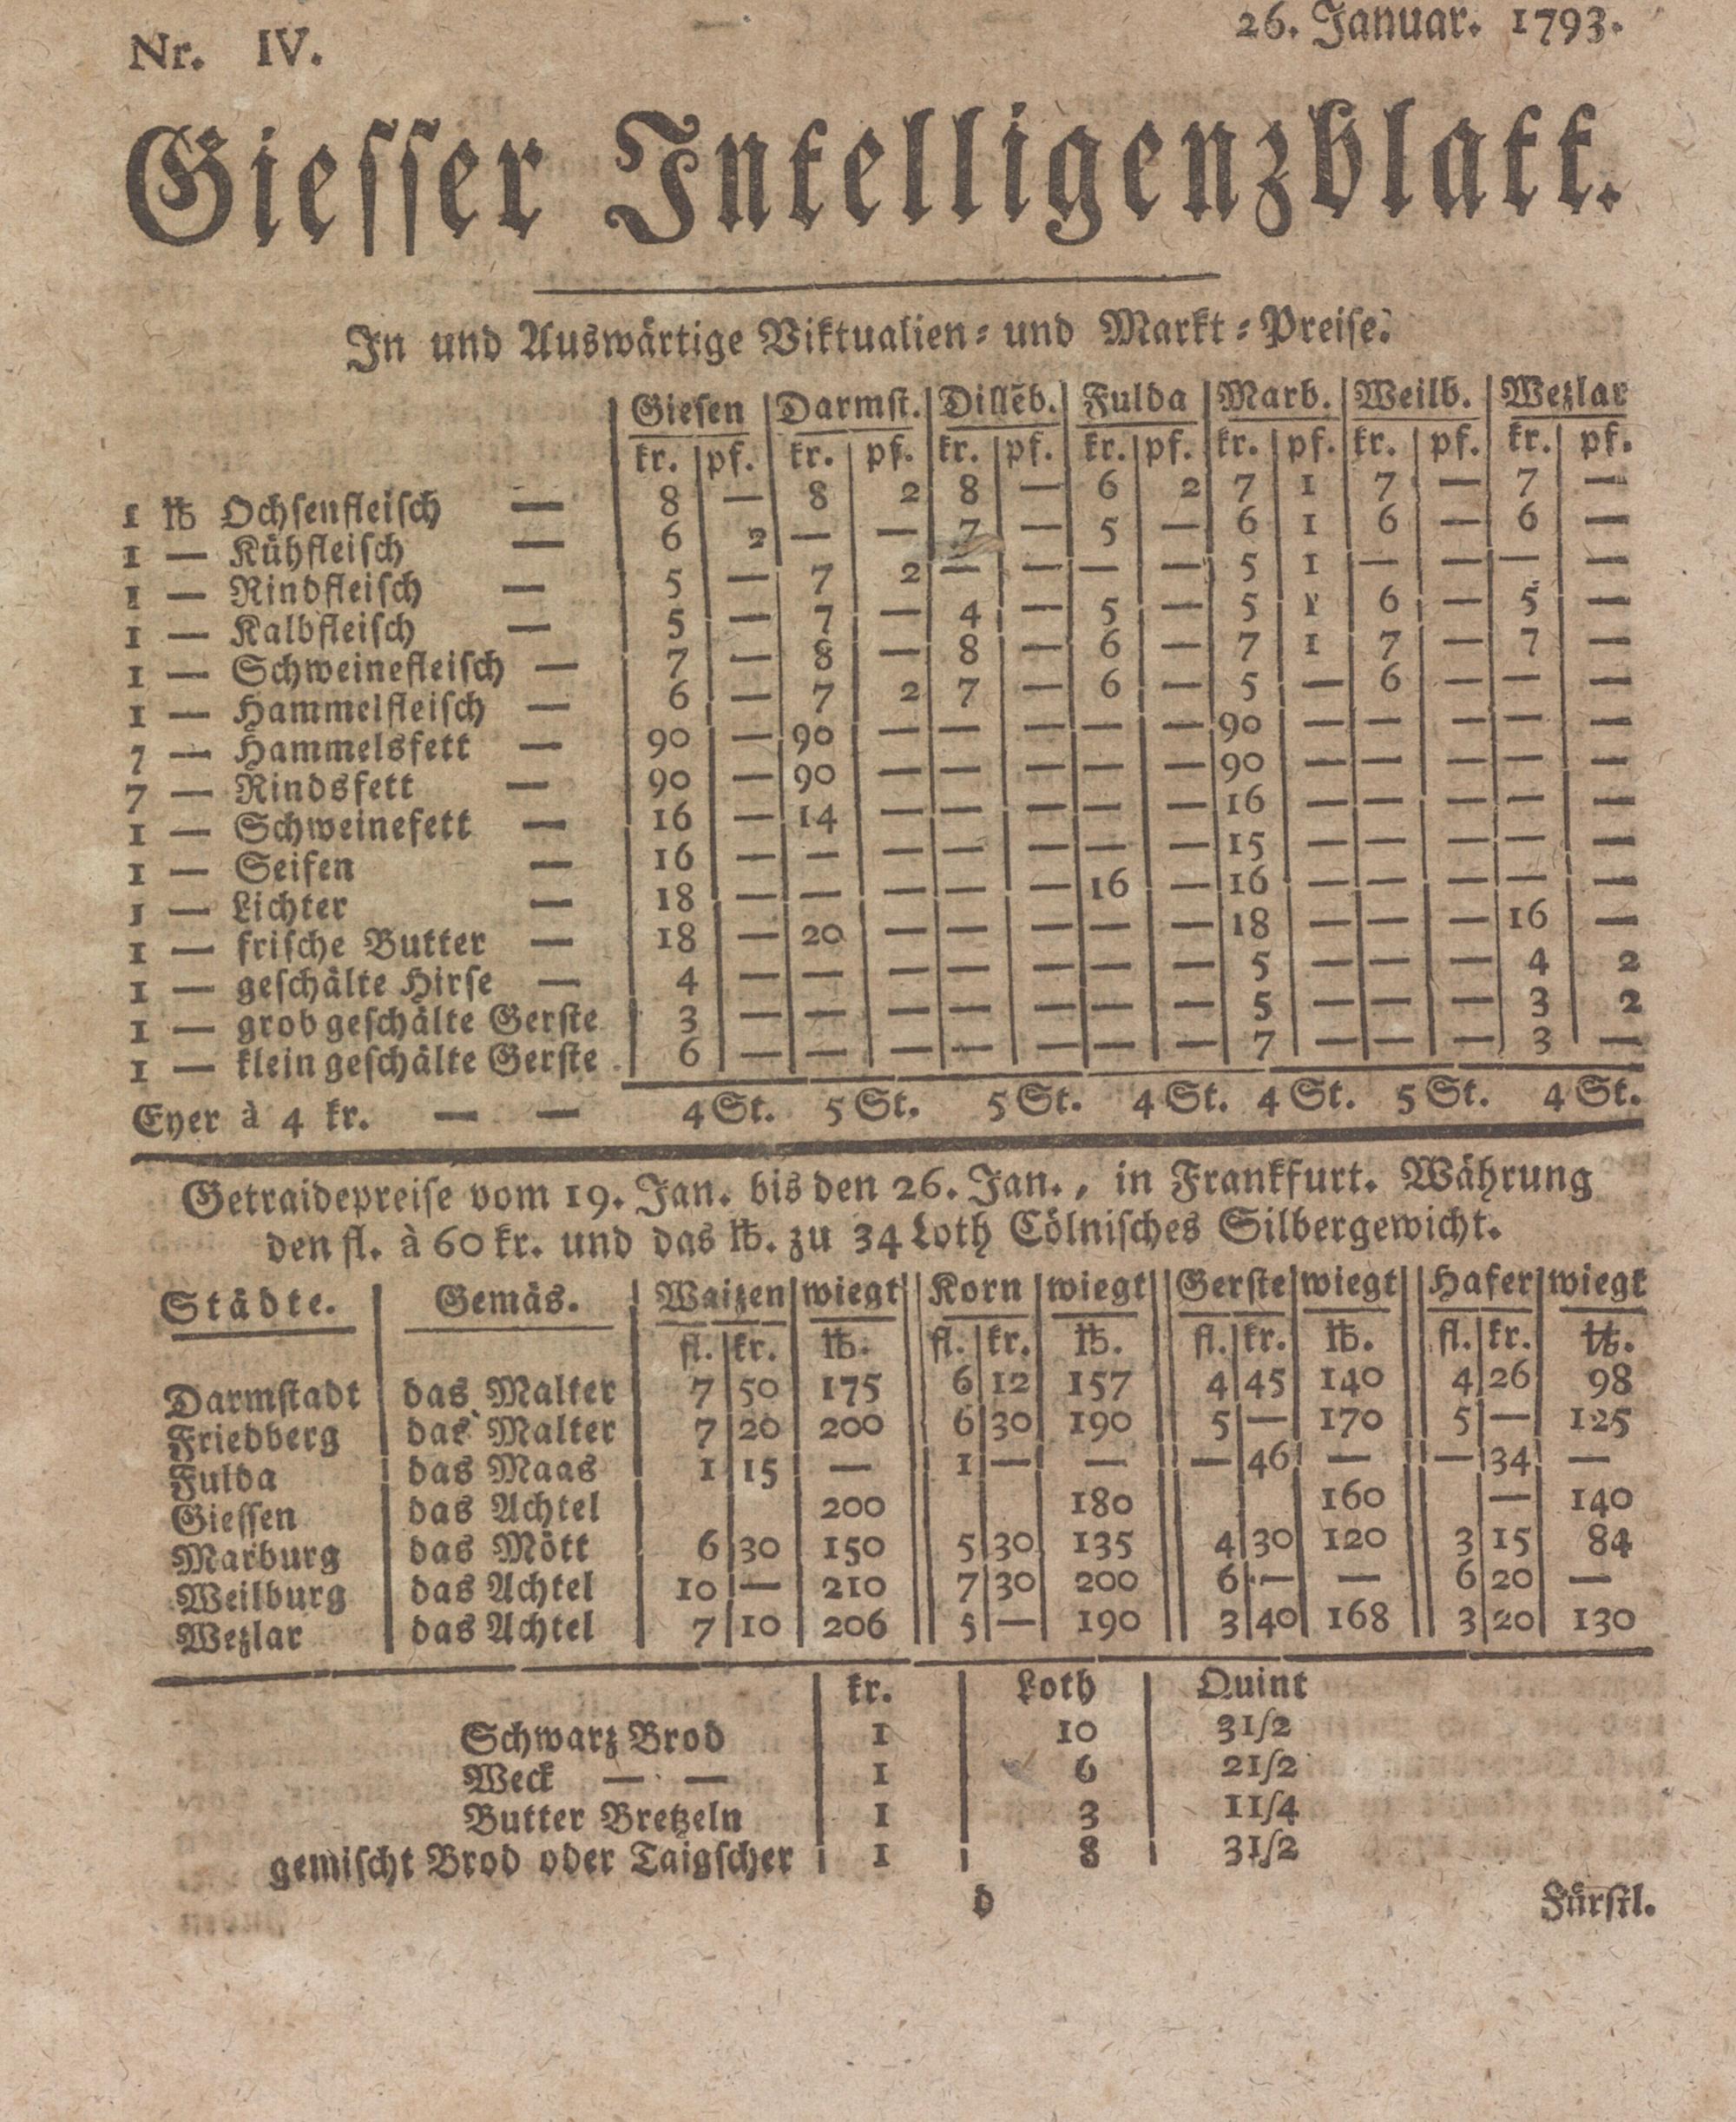 Nr. IV. 26. Januar. 1793.
Giesser Intelligenzblatt.
In und Auswärtige Viktualien- und Markt-Preise.
Giesen | Darmst. | Dillēb. | Fulda | Marb. | Weilb. | Wezlar
kr. | pf. | kr. | pf. | kr. | pf. | kr. | pf. | kr. | pf. | kr. | pf. | kr. | pf.
1 ℔ Ochsenfleisch — 8 | — | 8 | 2 | 8 | — | 6 | 2 | 7 | 1 | 7 | — | 7 | —
1 — Kühfleisch — 6 | 2 | — | — | 7 | — | 5 | — | 6 | 1 | 6 | — | 6 | —
1 — Rindfleisch — 5 | — | 7 | 2 | — | — | — | — | 5 | 1 | — | — | — | —
1 — Kalbfleisch — 5 | — | 7 | — | 4 | — | 5 | — | 5 | 1 | 6 | — | 5 | —
1 — Schweinefleisch — 7 | — | 8 | — | 8 | — | 6 | — | 7 | 1 | 7 | — | 7 | —
1 — Hammelfleisch — 6 | — | 7 | 2 | 7 | — | 6 | — | 5 | — | 6 | — | — | —
7 — Hammelsfett — 90 | — | 90 | — | — | — | — | — | 90 | — | — | — | — | —
7 — Rindsfett — 90 | — | 90 | — | — | — | — | — | 90 | — | — | — | — | —
1 — Schweinefett — 16 | — | 14 | — | — | — | — | — | 16 | — | — | — | — | —
1 — Seifen — 16 | — | — | — | — | — | — | — | 15 | — | — | — | — | —
1 — Lichter — 18 | — | — | — | — | — | 16 | — | 16 | — | — | — | — | —
1 — frische Butter — 18 | — | 20 | — | — | — | — | — | 18 | — | — | — | 16 | —
1 — geschälte Hirse — 4 | — | — | — | — | — | — | — | 5 | — | — | — | 4 | 2
1 — grob geschälte Gerste 3 | — | — | — | — | — | — | — | 5 | — | — | — | 3 | 2
1 — klein geschälte Gerste . 6 | — | — | — | — | — | — | — | 7 | — | — | — | 3 | —
Eyer à 4 kr. — — 4 St. 5 St. 5 St. 4 St. 4 St. 5 St. 4 St.
Getraidepreise vom 19. Jan. bis den 26. Jan., in Frankfurt. Währung
den fl. à 60 kr. und das ℔. zu 34 Loth Cölnisches Silbergewicht.
Städte. | Gemäs. | Waizen | wiegt || Korn | wiegt || Gerste | wiegt || Hafer | wiegt
fl. | kr. | ℔. || fl. | kr. | ℔. || fl. | kr. | ℔. || fl. | kr. | ℔.
Darmstadt | das Malter | 7 | 50 | 175 || 6 | 12 | 157 || 4 | 45 | 140 || 4 | 26 | 98
Friedberg | das Malter | 7 | 20 | 200 || 6 | 30 | 190 || 5 | — | 170 || 5 | — | 125
Fulda | das Maas | 1 | 15 | — || 1 | — | — || — | 46 | — || — | 34 | —
Giessen | das Achtel | | | 200 || | | 180 || | | 160 || | — | 140
Marburg | das Mött | 6 | 30 | 150 || 5 | 30 | 135 || 4 | 30 | 120 || 3 | 15 | 84
Weilburg | das Achtel | 10 | — | 210 || 7 | 30 | 200 || 6 | — | — || 6 | 20 | —
Wezlar | das Achtel | 7 | 10 | 206 || 5 | — | 190 || 3 | 40 | 168 || 3 | 20 | 130
kr. | Loth | Quint
Schwarz Brod | 1 | 10 | 31/2
Weck — — | 1 | 6 | 21/2
Butter Bretzeln | 1 | 3 | 11/4
gemischt Brod oder Taigscher | 1 | 8 | 31/2
d Fürstl.